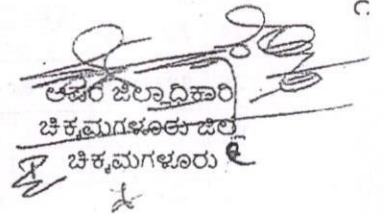 ಅಪರ ಜಿಲ್ಲಾಧಿಕಾರಿ
ಚಿಕ್ಕಮಗಳೂರು ಜಿಲ್ಲೆ
ಚಿಕ್ಕಮಗಳೂರು